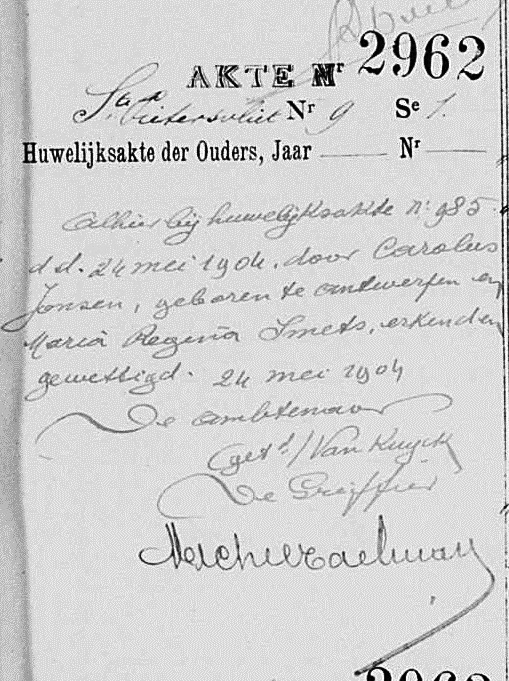 AKTE Nr 2962
Sint Pietersvliet Nr 9 Se 1.
Huwelijksakte der Ouders, Jaar Nr
Alhier bij huwelijksakte n: 985
d.d. 24 mei 1904. door Carolus
Jansen, geboren te antwerpen en
Maria Regina Smets, erkend en
gewettigd. 24 mei 1904
De ambtenaar
(get.d) Van Kuyck
De Greffier
2962